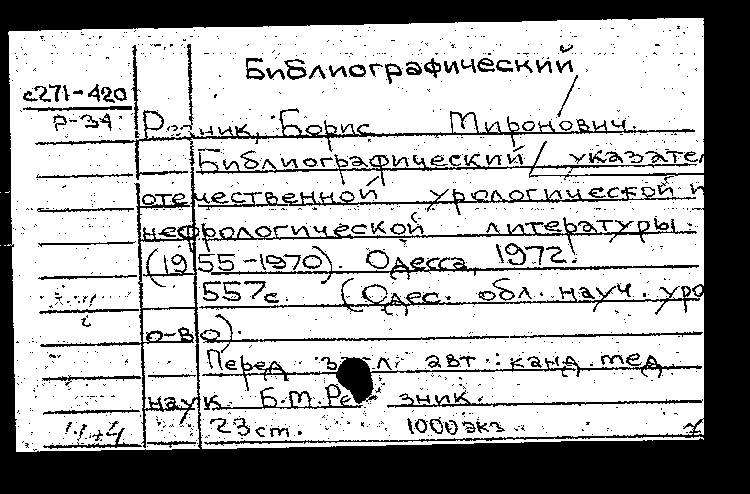 Библиографический
с271-420
Р-34
Резник, Борис Миронович.
Библиографический / указате
отечественной урологической и
нефрологической литературы.
(1955-1970). Одесса, 1972.
557с. (Одес. обл. науч. уро
о-во).
Перед загл. авт.: канд. мед
наук Б.М. Резник.
23 cm. 1000 экз